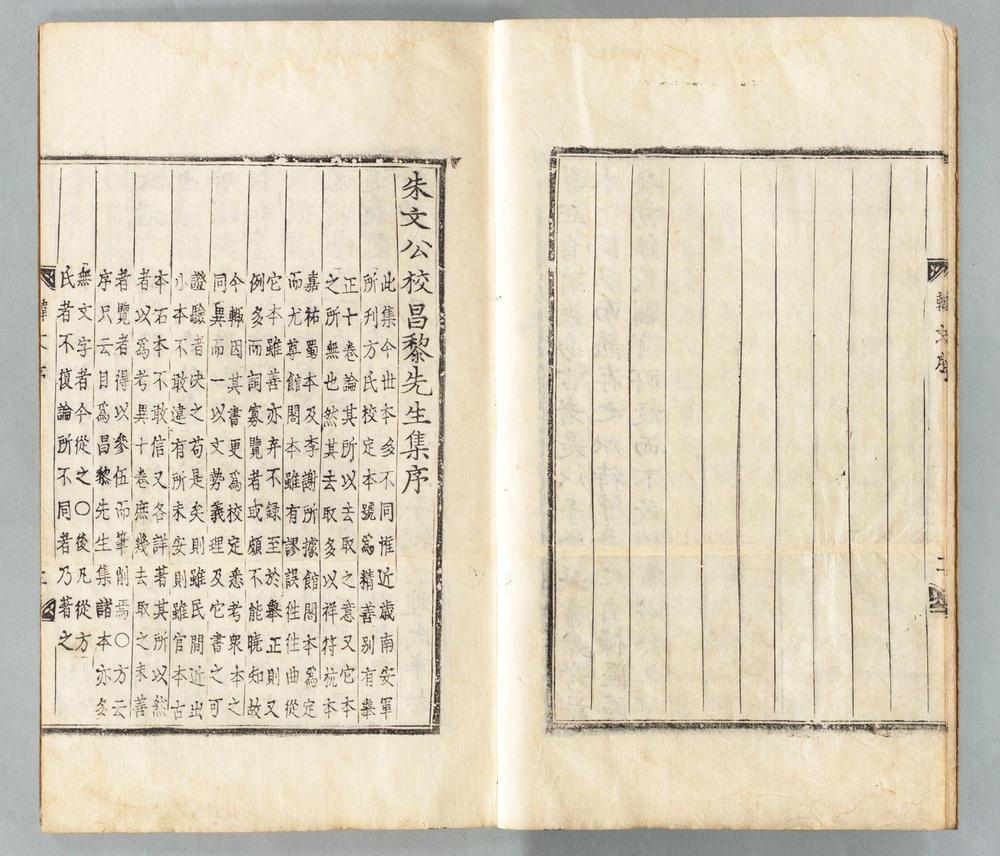 韓文序
二
朱文公校昌黎先生集序
此集今世本多不同惟近歲南安軍
所刊方氏校定本號爲精善別有舉
正十卷論其所以去取之意又它本
之所無也然其去取多以祥符杭本
嘉祐蜀本及李謝所據館閣本爲定
而尤尊館閣本雖有謬誤往往曲從
它本雖善亦弃不錄至於舉正則又
例多而詞寡覽者或頗不能曉知故
今輒因其書更爲校定悉考衆本之
同異而一以文勢義理及它書之可
證驗者決之苟是矣則雖民間近出
小本不敢違有所未安則雖官本古
本石本不敢信又各詳著其所以然
者以爲考異十卷庶幾去取之未善
者覽者得以參伍而筆削焉〇方云
序只云目爲昌黎先生集諸本亦多
無文字者今從之〇後凡從方
氏者不復論所不同者乃著之